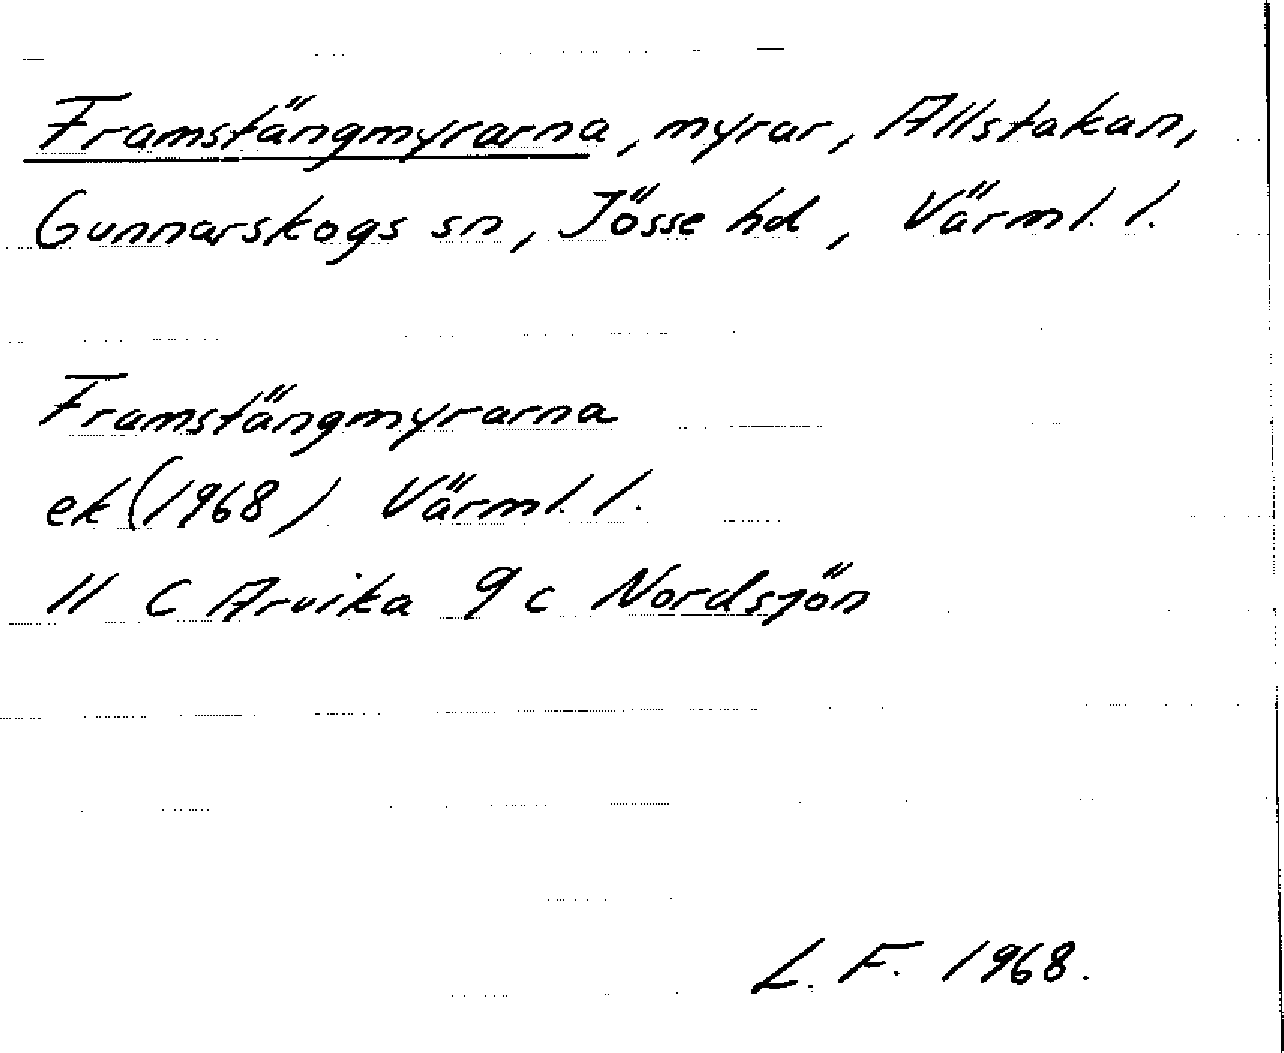 Framstängmyrarna, myrar, Allstakan,
Gunnarskogs sn, Jösse hd, Värml. l.
Framstängmyrarna
ek (1968) Värml. l.
11 C Arvika 9 c Nordsjön
L. F. 1968.